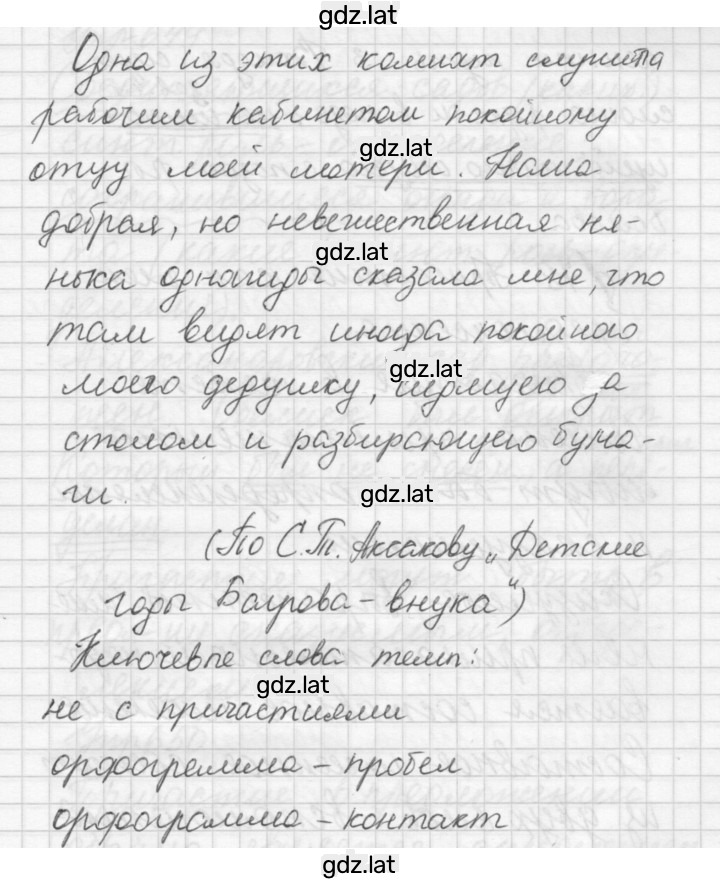 gdz.lat
Одна из этих комнат служила
рабочим кабинетом покойному
gdz.lat
отцу моей матери. Наша
добрая, но невежественная ня-
gdz.lat
нька однажды сказала мне, что
там видят иногда покойного
gdz.lat
моего дедушку, сидящего за
столом и разбирающего бума-
ги.
gdz.lat
(По С.Т. Аксакову „Детские
годы Багрова-внука")
Ключевые слова темы:
gdz.lat
не с причастиями
орфограмма - пробел
орфограмма - контакт
gdz.lat